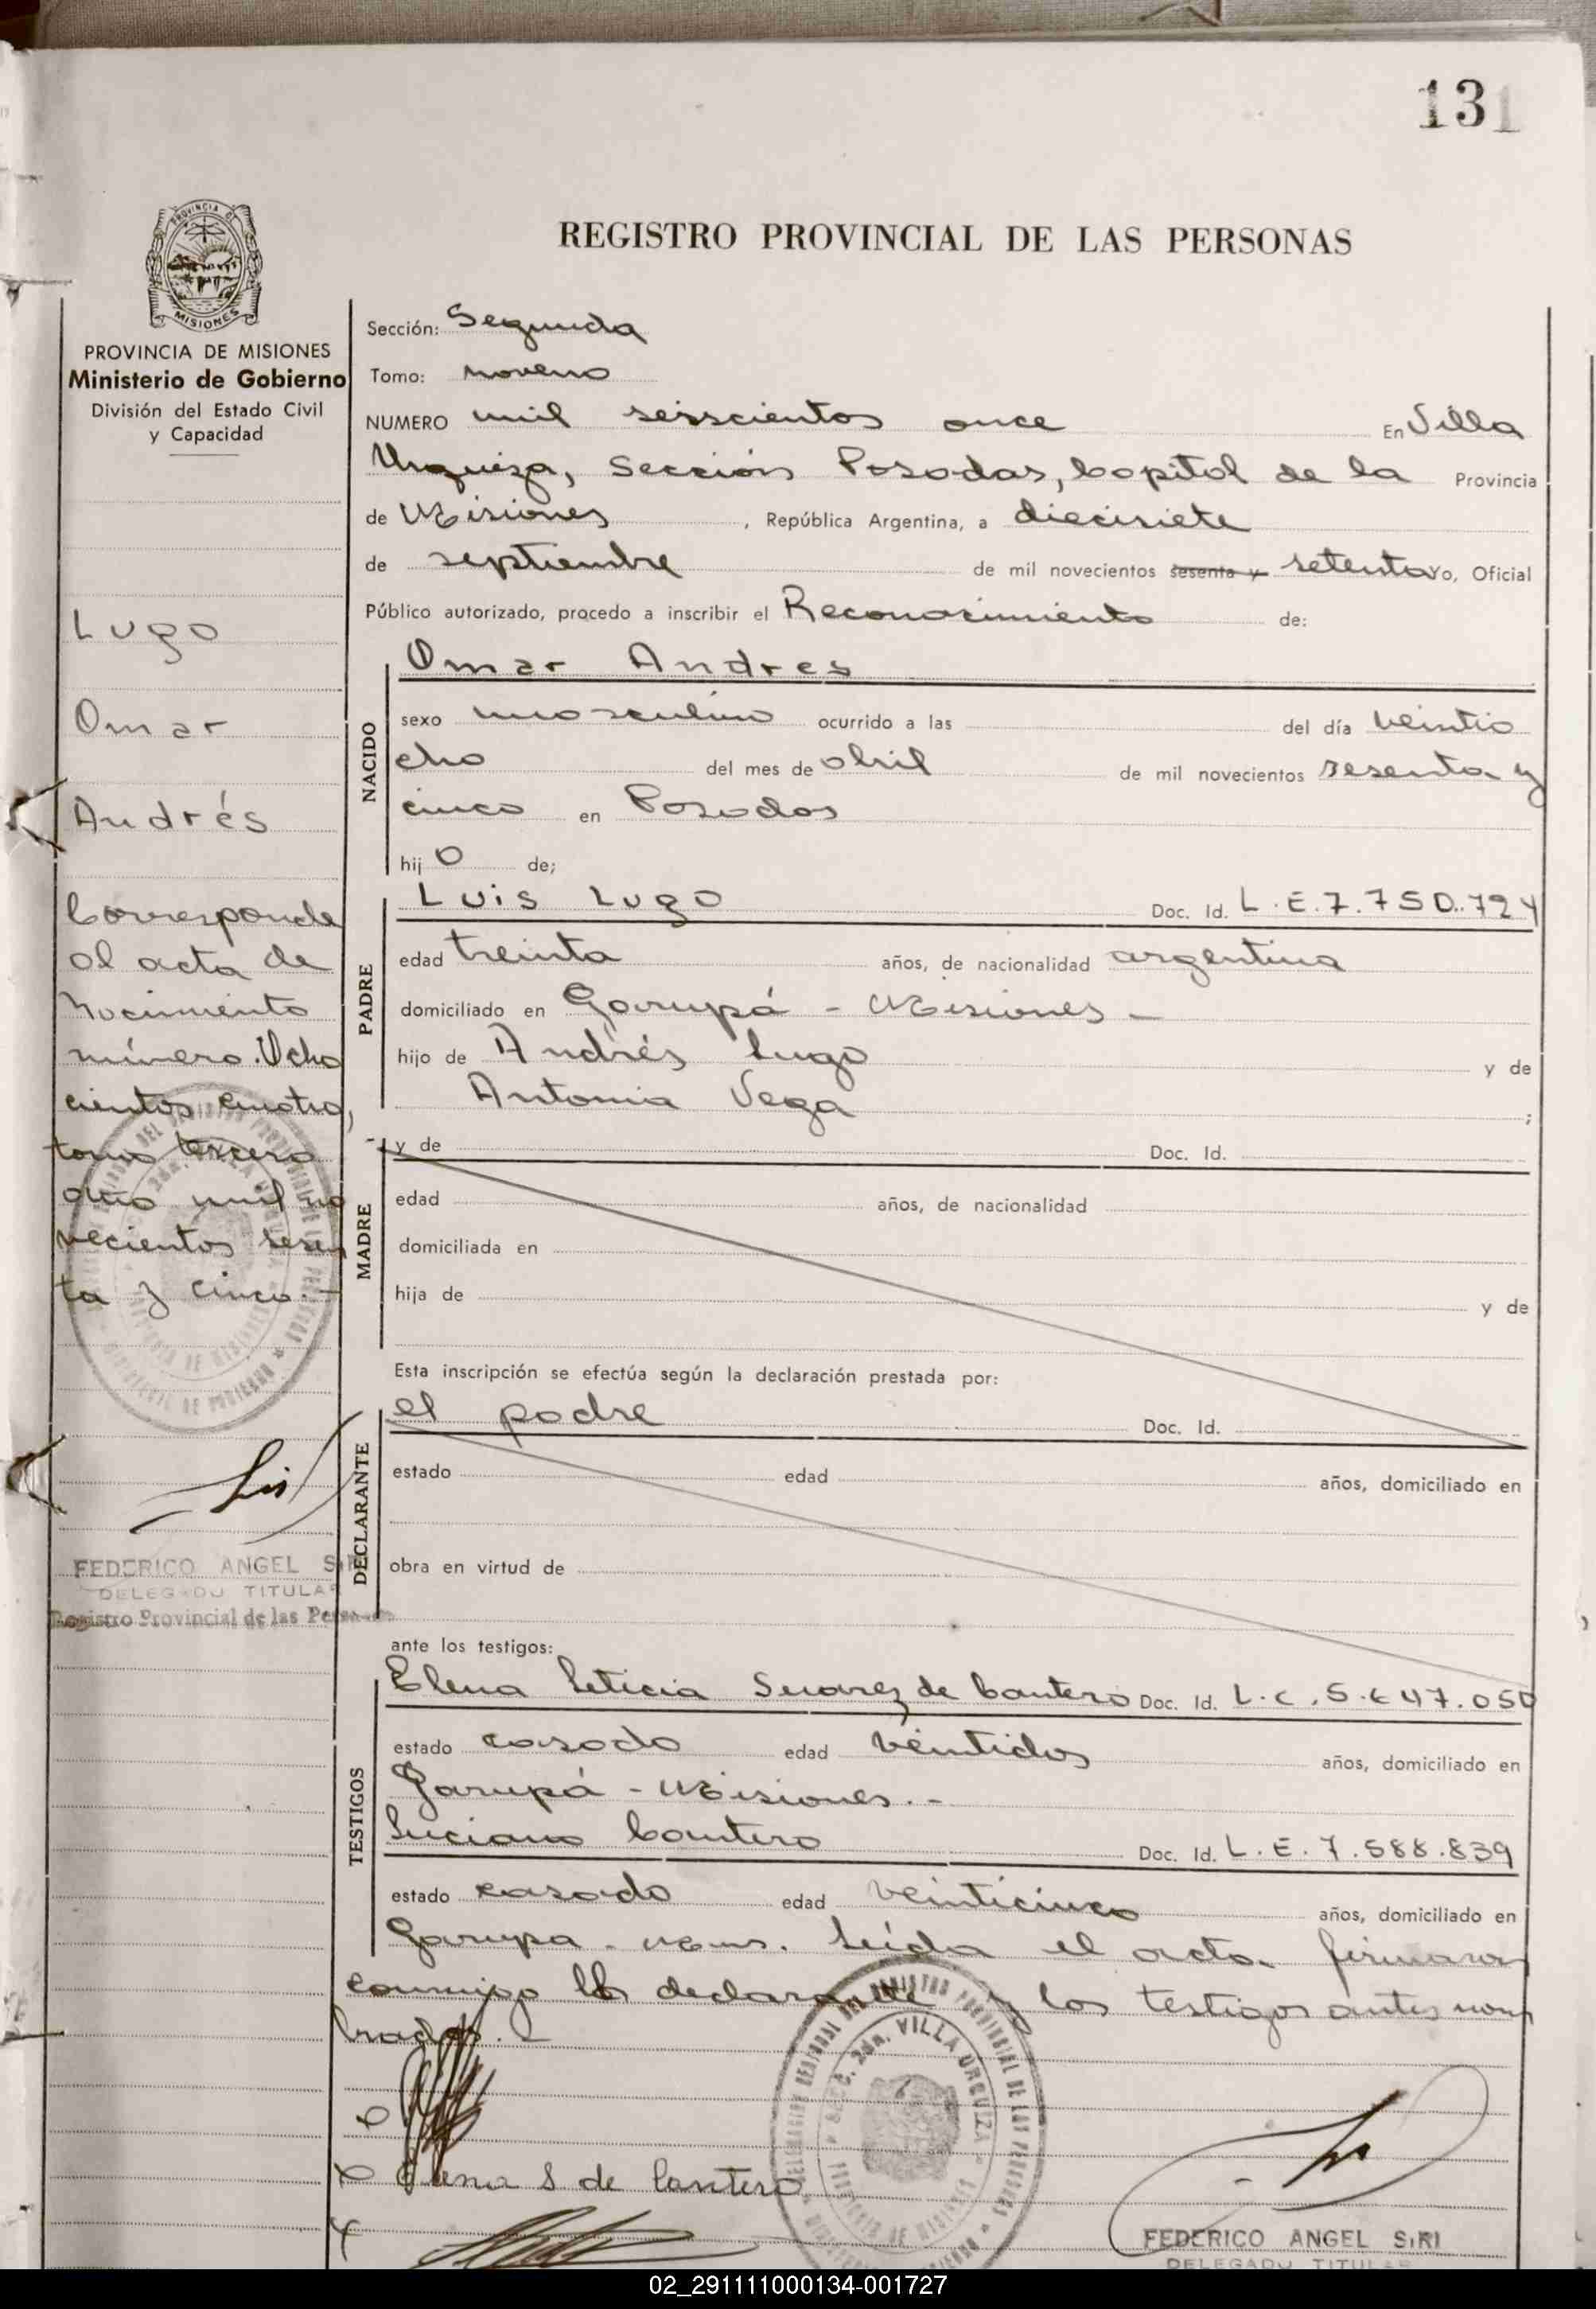 131
REGISTRO PROVINCIAL DE LAS PERSONAS
PROVINCIA DE MISIONES
Ministerio de Gobierno
División del Estado Civil
y Capacidad
Lugo
Omar
Andrés
Corresponde
al acta de
nacimiento
número Ocho
cientos cuatro,
tomo tercero
año mil no
vecientos sesen
ta y cinco.-
FEDERICO ANGEL SIRI
DELEGADO TITULAR
Registro Provincial de las Personas
Sección: Segunda
Tomo: noveno
NUMERO mil seiscientos once En Villa
Urquiza, Sección Posadas, Capital de la Provincia
de Misiones, República Argentina, a diecisiete
de septiembre de mil novecientos sesenta y setenta yo, Oficial
Público autorizado, procedo a inscribir el Reconocimiento de:
NACIDO
Omar Andres
sexo masculino ocurrido a las del día veintio
cho del mes de abril de mil novecientos sesenta y
cinco en Posadas
hij o de;
PADRE
Luis Lugo Doc. Id. L.E.7.750.724
edad treinta años, de nacionalidad argentina
domiciliado en Garupá - Misiones -
hijo de Andrés Lugo y de
Antonia Vega ;
MADRE
y de Doc. Id.
edad años, de nacionalidad
domiciliada en
hija de y de
Esta inscripción se efectúa según la declaración prestada por:
DECLARANTE
el padre Doc. Id.
estado edad años, domiciliado en
obra en virtud de
ante los testigos:
TESTIGOS
Elena Leticia Suarez de Cantero Doc. Id. L.C.5.647.050
estado casada edad veintidos años, domiciliado en
Garupá - Misiones.-
Luciano Cantero Doc. Id. L.E.7.588.839
estado casado edad veinticinco años, domiciliado en
Garupa - Leida el acta firman
conmigo declarante y los testigos antes nom
brados.
VILLA URQUIZA
Elena S de Cantero
FEDERICO ANGEL SIRI
DELEGADO TITULAR
02_291111000134-001727